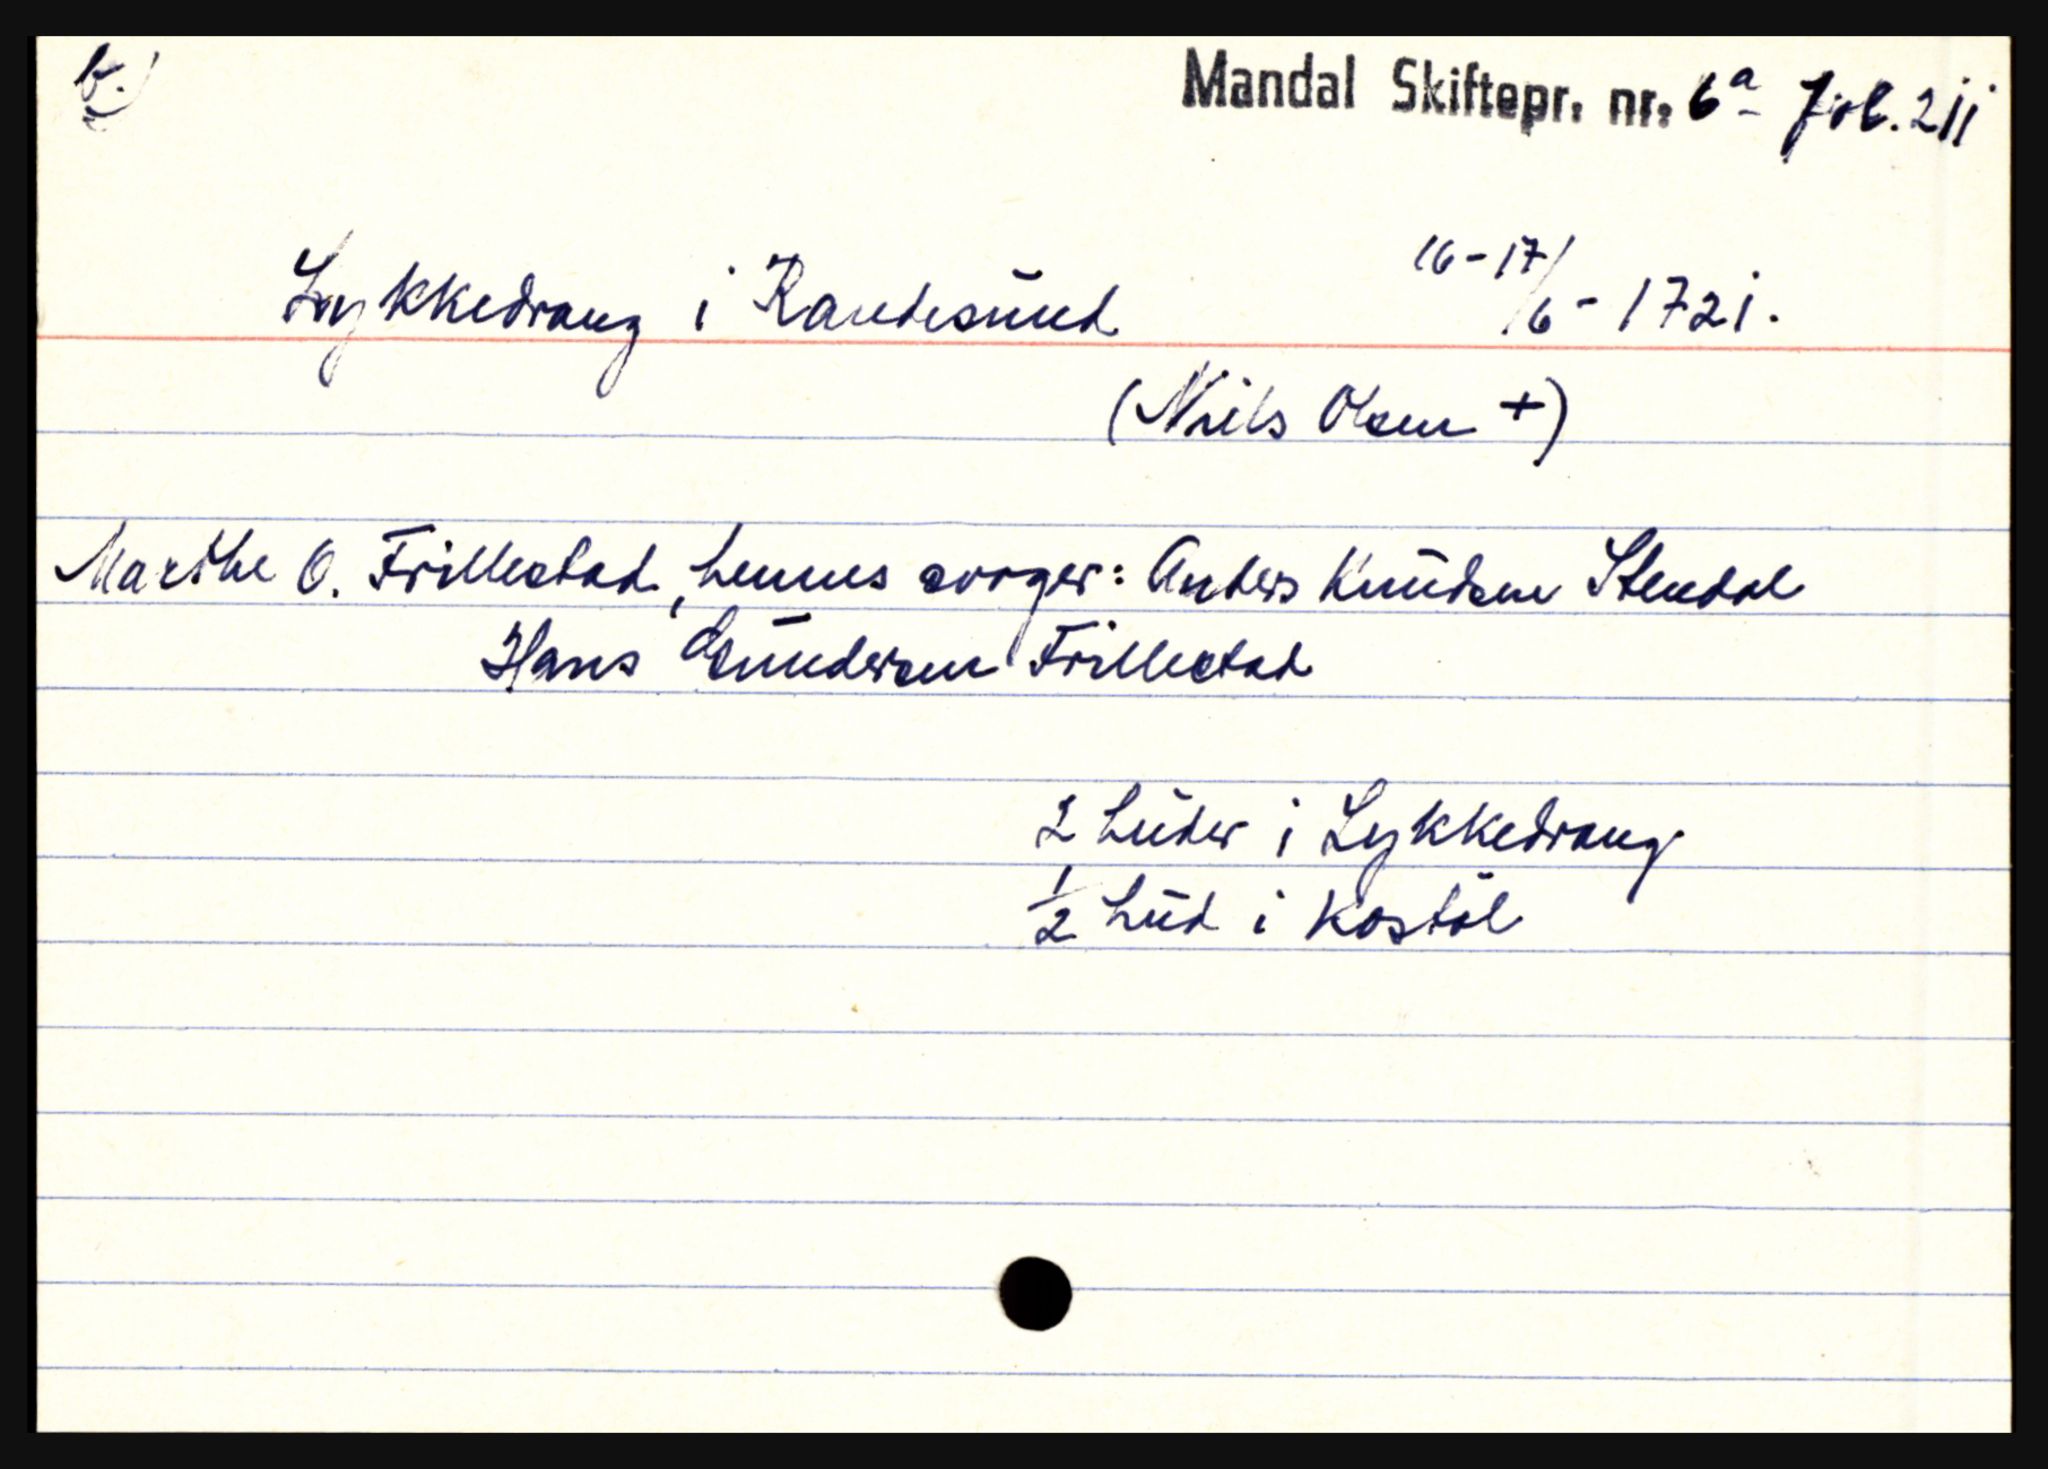 b.)
Mandal Skiftepr. nr. 6a fol. 211
Lykkedrang i Randesund 16-17/6-1721.
(Niels Olsen +)
Marthe O. Frillestad, hennes svoger: Anders Knudsen Stendal
Hans Gundersen Frillestad
2 huder i Lykkedrang
1/2 hud i Kostøl